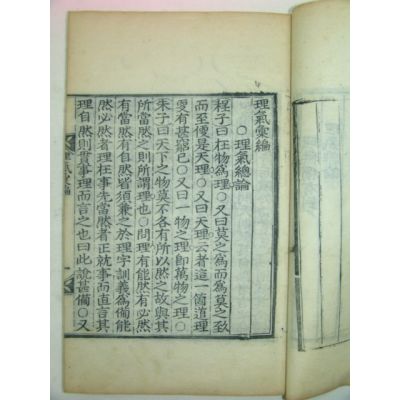 理氣彙編
○理氣總論
程子曰在物爲理○又曰莫之爲而爲莫之致
而至便是天理○又曰天理云者這一箇道理
更有甚窮已○又曰一物之理卽萬物之理○
朱子曰天下之物莫不各有所以然之故與其
所當然之則所謂理也○問理有能然有必然
有當然有自然皆須兼之於理字訓義爲備能
然必然者理在事先當然者正就事而直言其
理自然則貫事理而言之也曰此說甚備○又